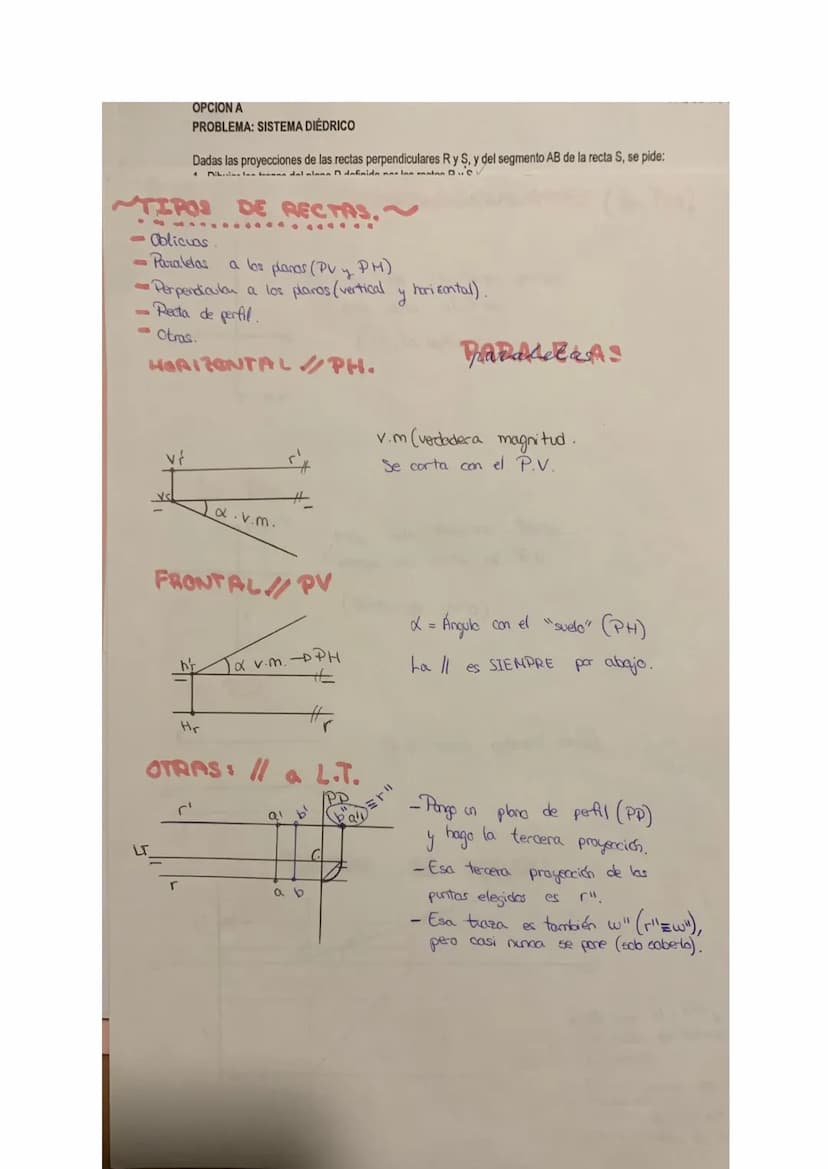 OPCION A
PROBLEMA: SISTEMA DIÉDRICO
Dadas las proyecciones de las rectas perpendiculares R y S, y del segmento AB de la recta S, se pide:
TIPOS DE RECTAS.
- Oblicuas.
- Paralelas a los planos (PV y PH)
- Perpendicular a los planos (vertical y horizontal).
- Recta de perfil.
- Otras.
PARALELAS
paralelas
HORIZONTAL // PH.
v.m (verdadera magnitud.
Se corta con el P.V.
r'
α . v.m.
FRONTAL // PV
α = Ángulo con el "suelo" (PH)
La // es SIEMPRE por abajo.
α v.m. → PH
Hr
r
OTRAS: // a L.T.
PP
r' a' b' b'' a'' ≡ r''
LT
r
a b
- Pongo un plano de perfil (PP)
y hago la tercera proyección.
- Esa tercera proyección de los
puntos elegidos es r''.
- Esa traza es también w'' (r''≡w''),
pero casi nunca se pone (sob saberlo).